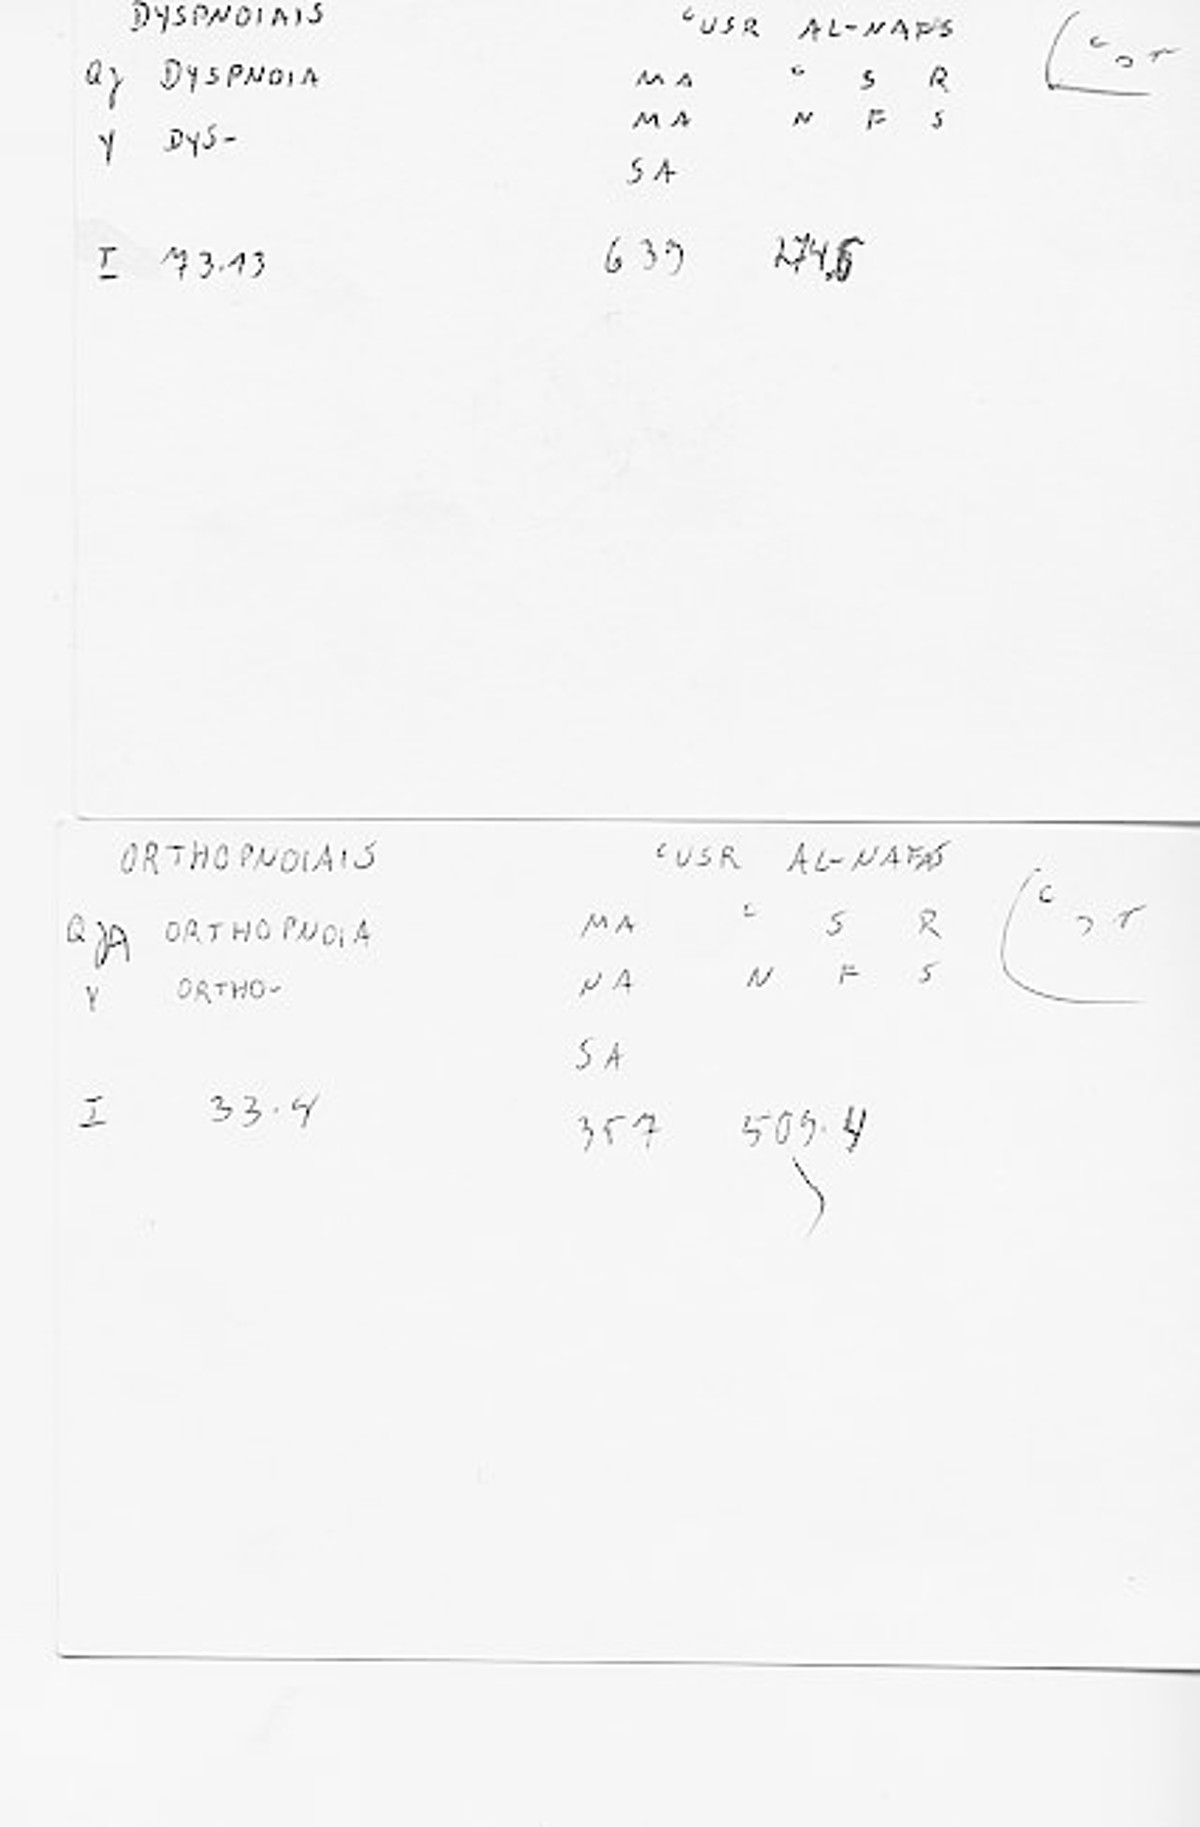 DYSPNOIAIS ʿUSR AL-NAFS
Qγ DYSPNOIA MA ʿ S R
Y DYS- MA N F S
SA
I 73.13 639
ORTHOPNOIAIS ʿUSR AL-NAFAS
ORTHOPNOIA MA ʿ S R
Y ORTHO- NA N F S
SA
I 33.4 357 509.4